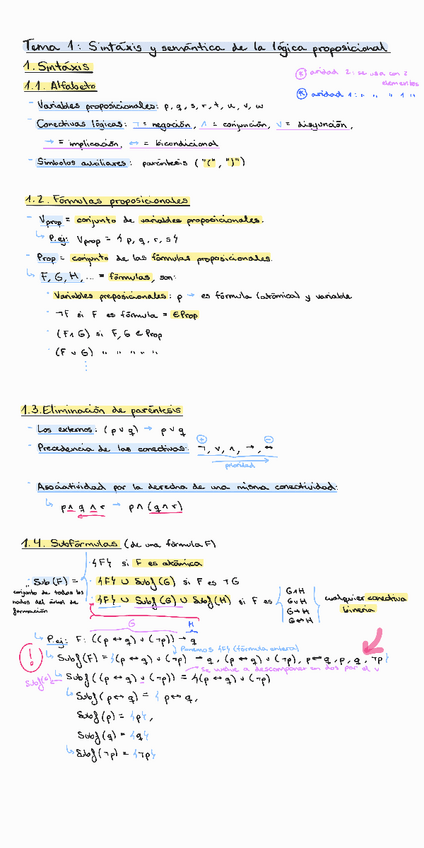 Tema 1: Sintáxis y semántica de la lógica proposicional
1. Sintáxis
® aridad 2: se usa con 2 elementos
1.1. Alfabeto
® aridad 1: " " " 1 "
- Variables proposicionales: p, q, s, r, t, u, v, w
- Conectivas lógicas: ¬ = negación, ∧ = conjunción, ∨ = disyunción,
→ = implicación, ↔ = bicondicional
- Símbolos auxiliares: paréntesis ("(", ")")
1.2. Fórmulas proposicionales
- Vprop = conjunto de variables proposicionales.
↳ P.ej: Vprop = {p, q, r, s}
- Prop = conjunto de las fórmulas proposicionales.
↳ F, G, H, ... = fórmulas, son:
· Variables proposicionales: p → es fórmula (atómica) y variable
· ¬F si F es fórmula = ∈Prop
· (F∧G) si F, G ∈ Prop
· (F ∨ G) " " " " "
⋮
1.3. Eliminación de paréntesis
- Los externos: (p ∨ q) → p ∨ q
- Precedencia de las conectivas: ¬, ∨, ∧, →, ↔
prioridad
- Asociatividad por la derecha de una misma conectividad:
↳ p ∧ q ∧ r → p ∧ (q ∧ r)
1.4. Subfórmulas (de una fórmula F)
{F} si F es atómica
Sub(F) =
{F} ∪ Subf(G) si F es ¬G
conjunto de todos los nodos del árbol de formación
{F} ∪ Subf(G) ∪ Subf(H) si F es
G∧H
G∨H
G→H
G↔H
cualquier conectiva binaria
G H
↳ P.ej: F: ((p ↔ q) ∨ (¬p)) → q
Ponemos {F} (fórmula entera)
↳ Subf(F) = {(p ↔ q) ∨ (¬p) → q, (p ↔ q) ∨ (¬p), p↔q, p, q, ¬p}
se vuelve a descomponer en dos por el ∨
↳ Subf((p ↔ q) ∨ (¬p)) = {(p ↔ q) ∨ (¬p)
Subf(p ↔ q) = { p ↔ q,
Subf(p) = {p},
Subf(q) = {q}
↳ Subf(¬p) = {¬p}